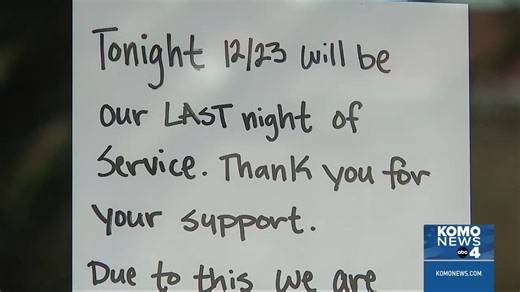 Tonight 12/23 will be
our LAST night of
Service. Thank you for
your support.
Due to this we are
KOMO
NEWS 4
abc
KOMONEWS.COM